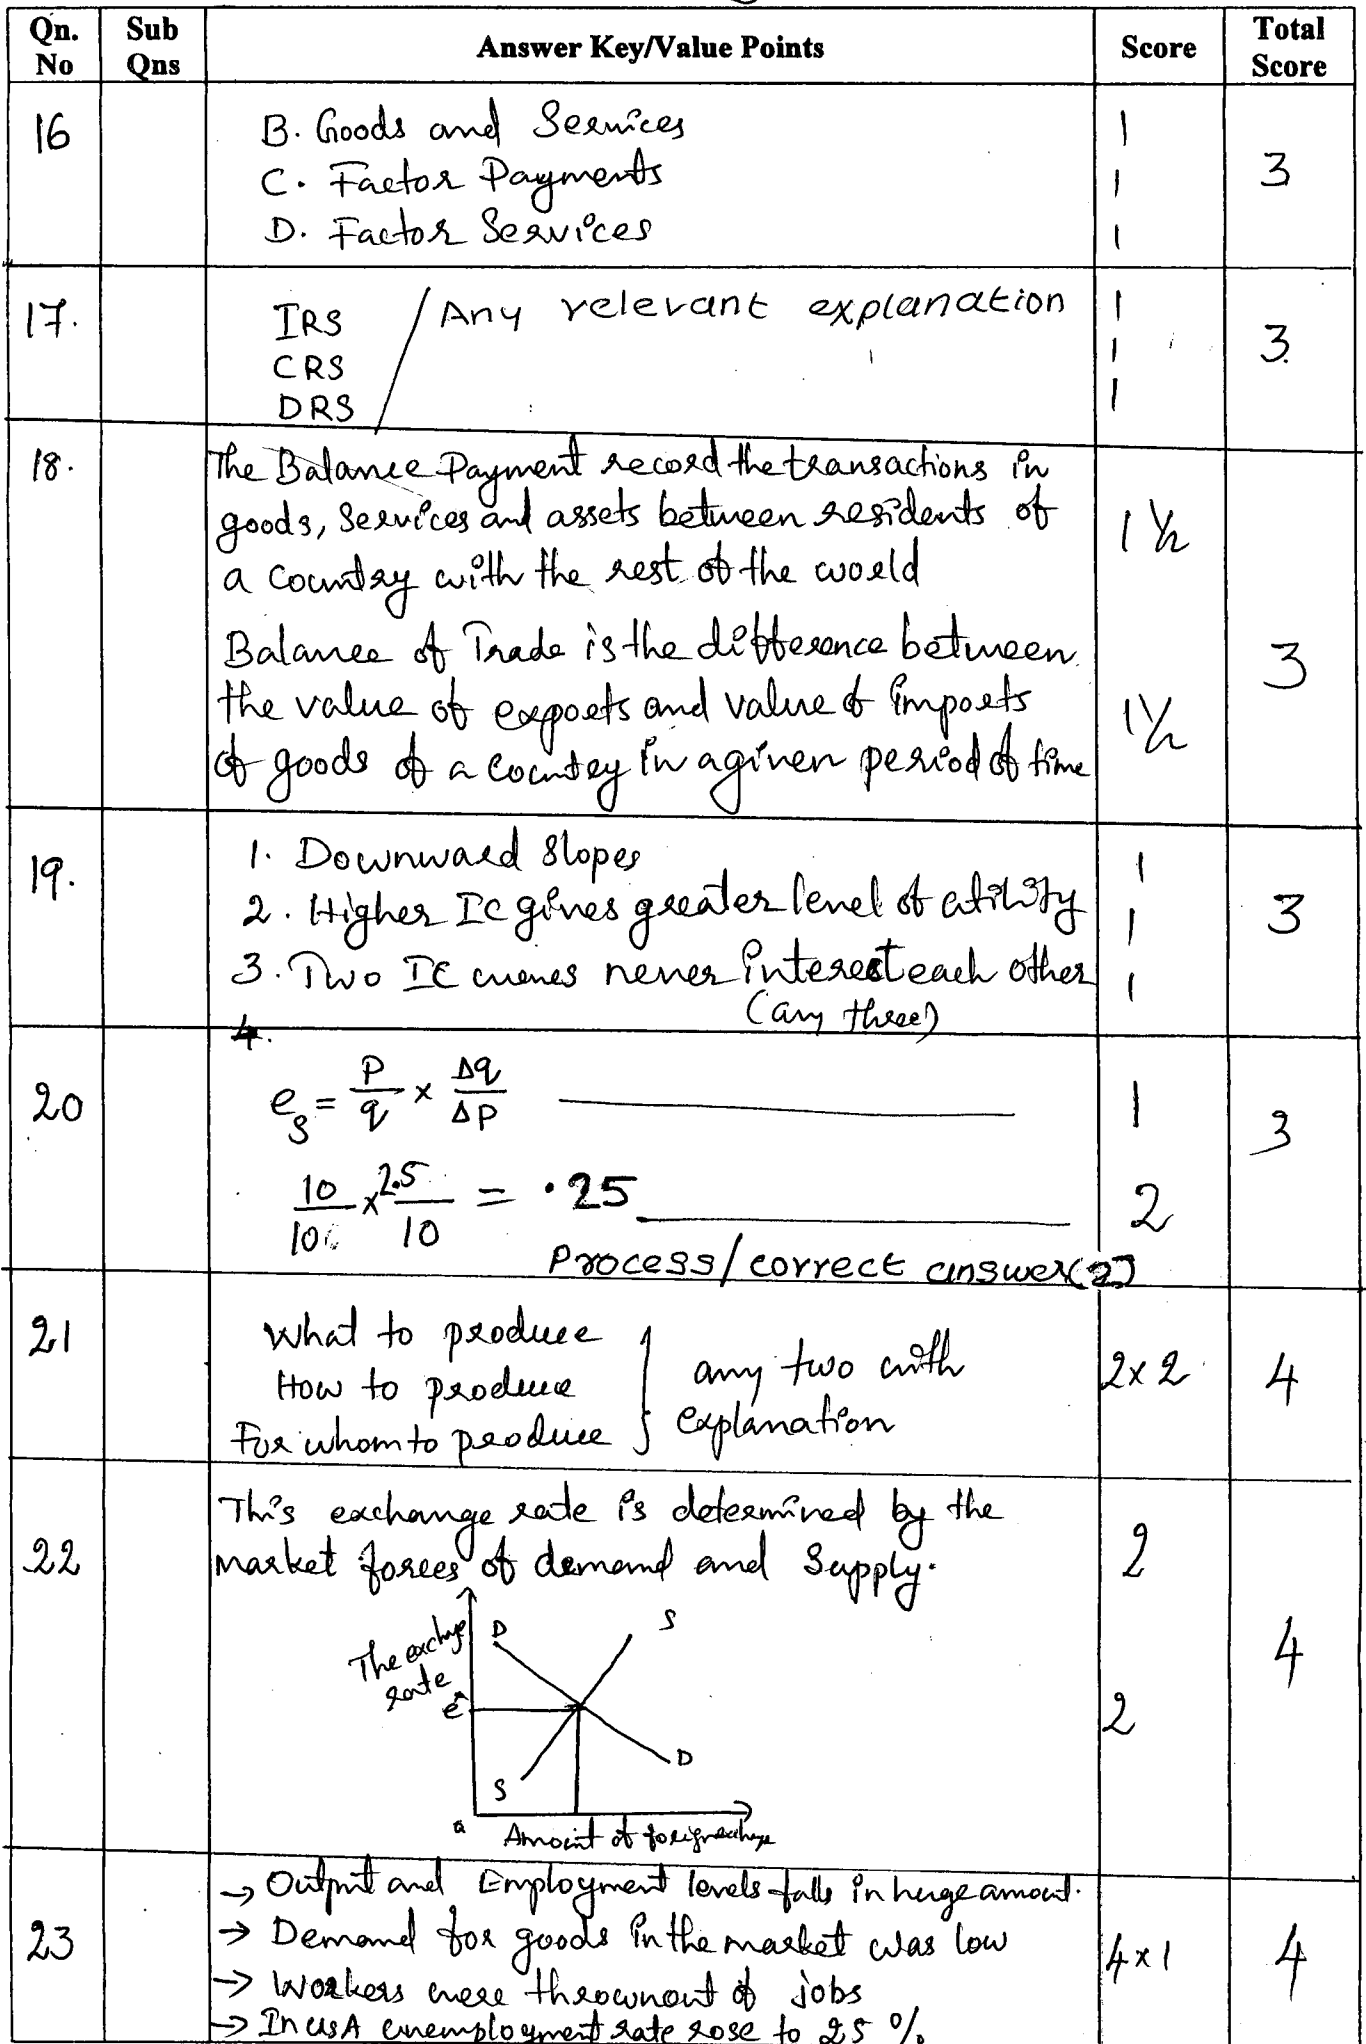 Qn. No Sub Qns Answer Key/Value Points Score Total Score
16 B. Goods and Services 1
C. Factor Payments 1 3
D. Factor Services 1
17. IRS / Any relevant explanation 1
CRS 1 3
DRS 1
18. The Balance Payment record the transactions in
goods, Services and assets between residents of 1 1/2
a country with the rest of the world
Balance of Trade is the difference between 3
the value of exports and value of imports 1 1/2
of goods of a country in a given period of time
19. 1. Downward Slopes 1
2. Higher IC gives greater level of utility 1 3
3. Two IC curves never interesct each other 1
(any three)
4.
20 e_s = P/q × Δq/ΔP 1 3
10/100 × 2.5/10 = .25 2
Process/correct answer(2)
21 What to produce
How to produce } any two with explanation 2×2 4
For whom to produce
This exchange rate is determined by the
22 market forces of demand and Supply. 2
The exchage rate D S 4
e* 2
S D
Amount of
23 → Output and Employment levels falls in huge amount.
→ Demand for goods in the market was low 4×1 4
→ Workers were thrown out of jobs
→ In USA unemployment rate rose to 25 %